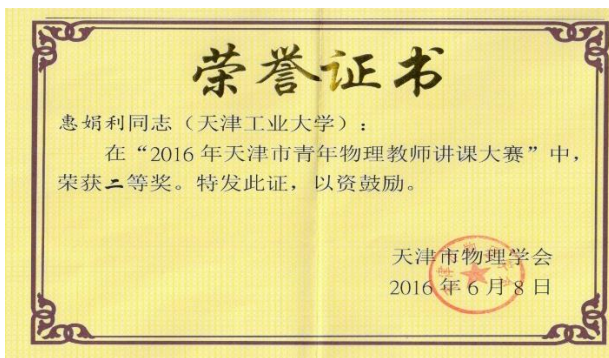 荣誉证书
惠娟利同志（天津工业大学）：
在“2016年天津市青年物理教师讲课大赛”中，
荣获二等奖。特发此证，以资鼓励。
天津市物理学会
2016年6月8日